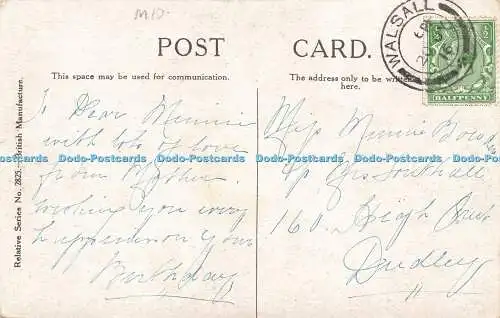 MID.
POST CARD.
This space may be used for communication.
The address only to be written here.
Relative Series No. 2825.—British Manufacture.
WALSALL
HALFPENNY
Dear Minnie
with lots of love
from Mother
wishing you every
happiness on your
Birthday
Miss Minnie
160 High
Dudley
Dodo-Postcards Dodo-Postcards Dodo-Postcards Dodo-Postcards Dodo-Postcards Dodo-Postcards